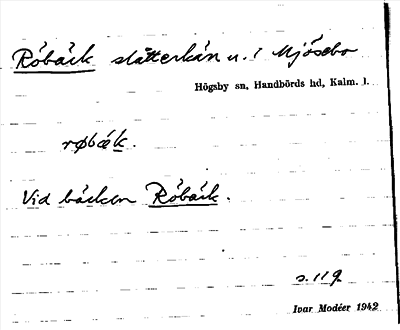 Röbäck slåtterkärr u. / Mjösebo
Högsby sn, Handbörds hd, Kalm. l.
røbæk.
Vid bäcken Röbäck.
s. 119.
Ivar Modéer 1942